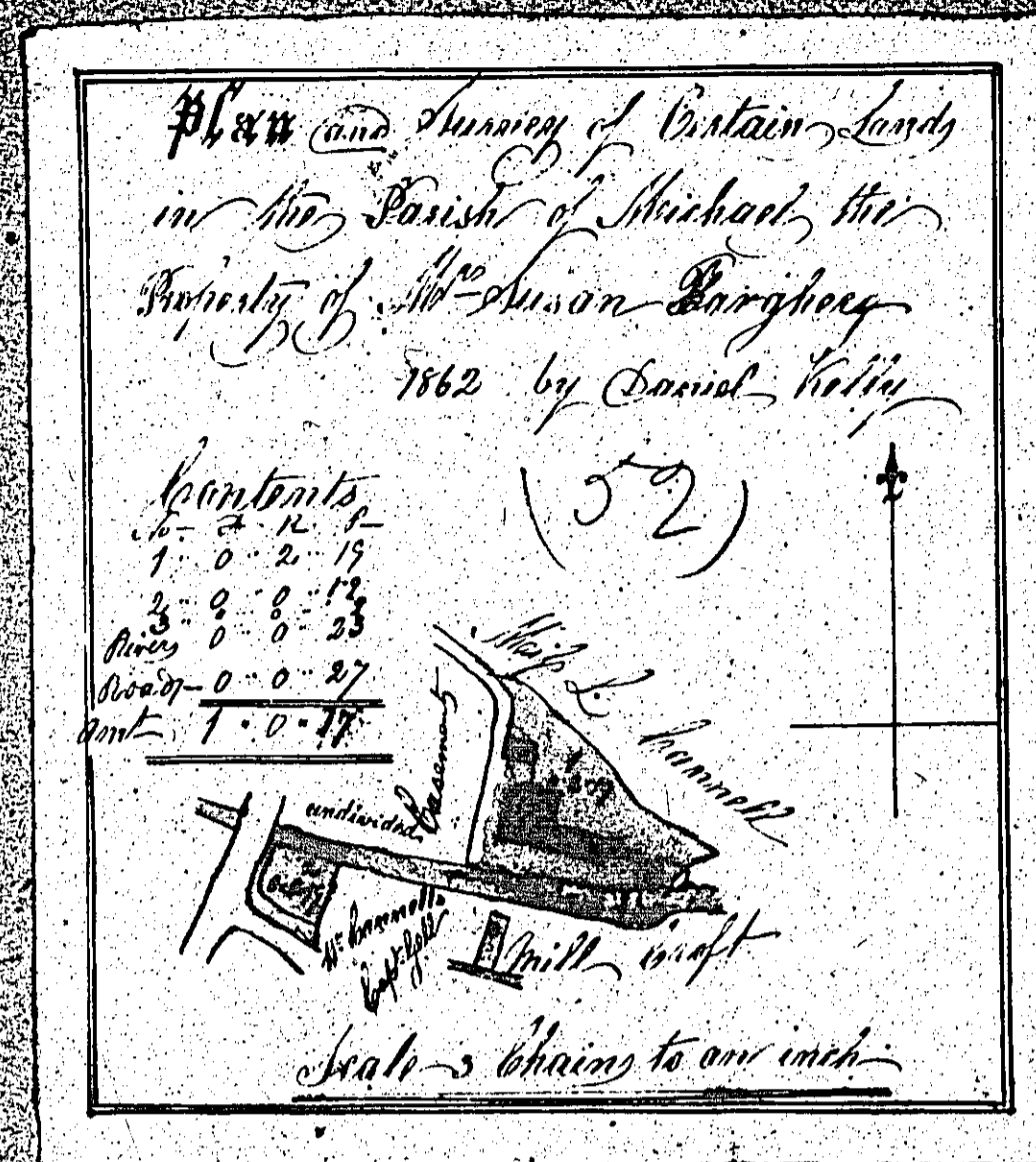 Plan and Survey of Certain Lands
in the Parish of Michael the
Property of Mrs Susan
1862 by Daniel Kelly
(52)
Contents
No A R P
1 " 0 " 2 " 19
2 " 0 " 0 " 12
3 " 0 " 0
Rivers 0 " 0 " 23
Roads 0 " 0 " 27
Amt 1 " 0 " 17
Miss L. Cannell
Casements
undivided
1
Mr Cannell
Capt Gell
Mill Croft
Scale 3 Chains to one inch